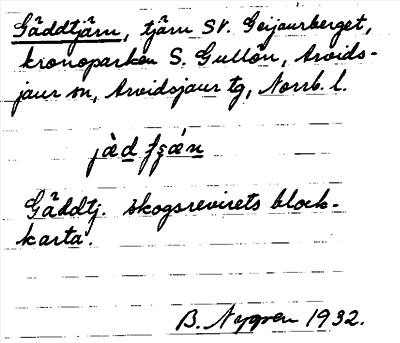 Gäddtjärn, tjärn SV. Geijaurberget,
kronoparken S. Gullön, Arvids-
jaur sn, Arvidsjaur tg, Norrb. l.
Gäddtj. skogsrevirets block-
karta.
B. Nygren 1932.